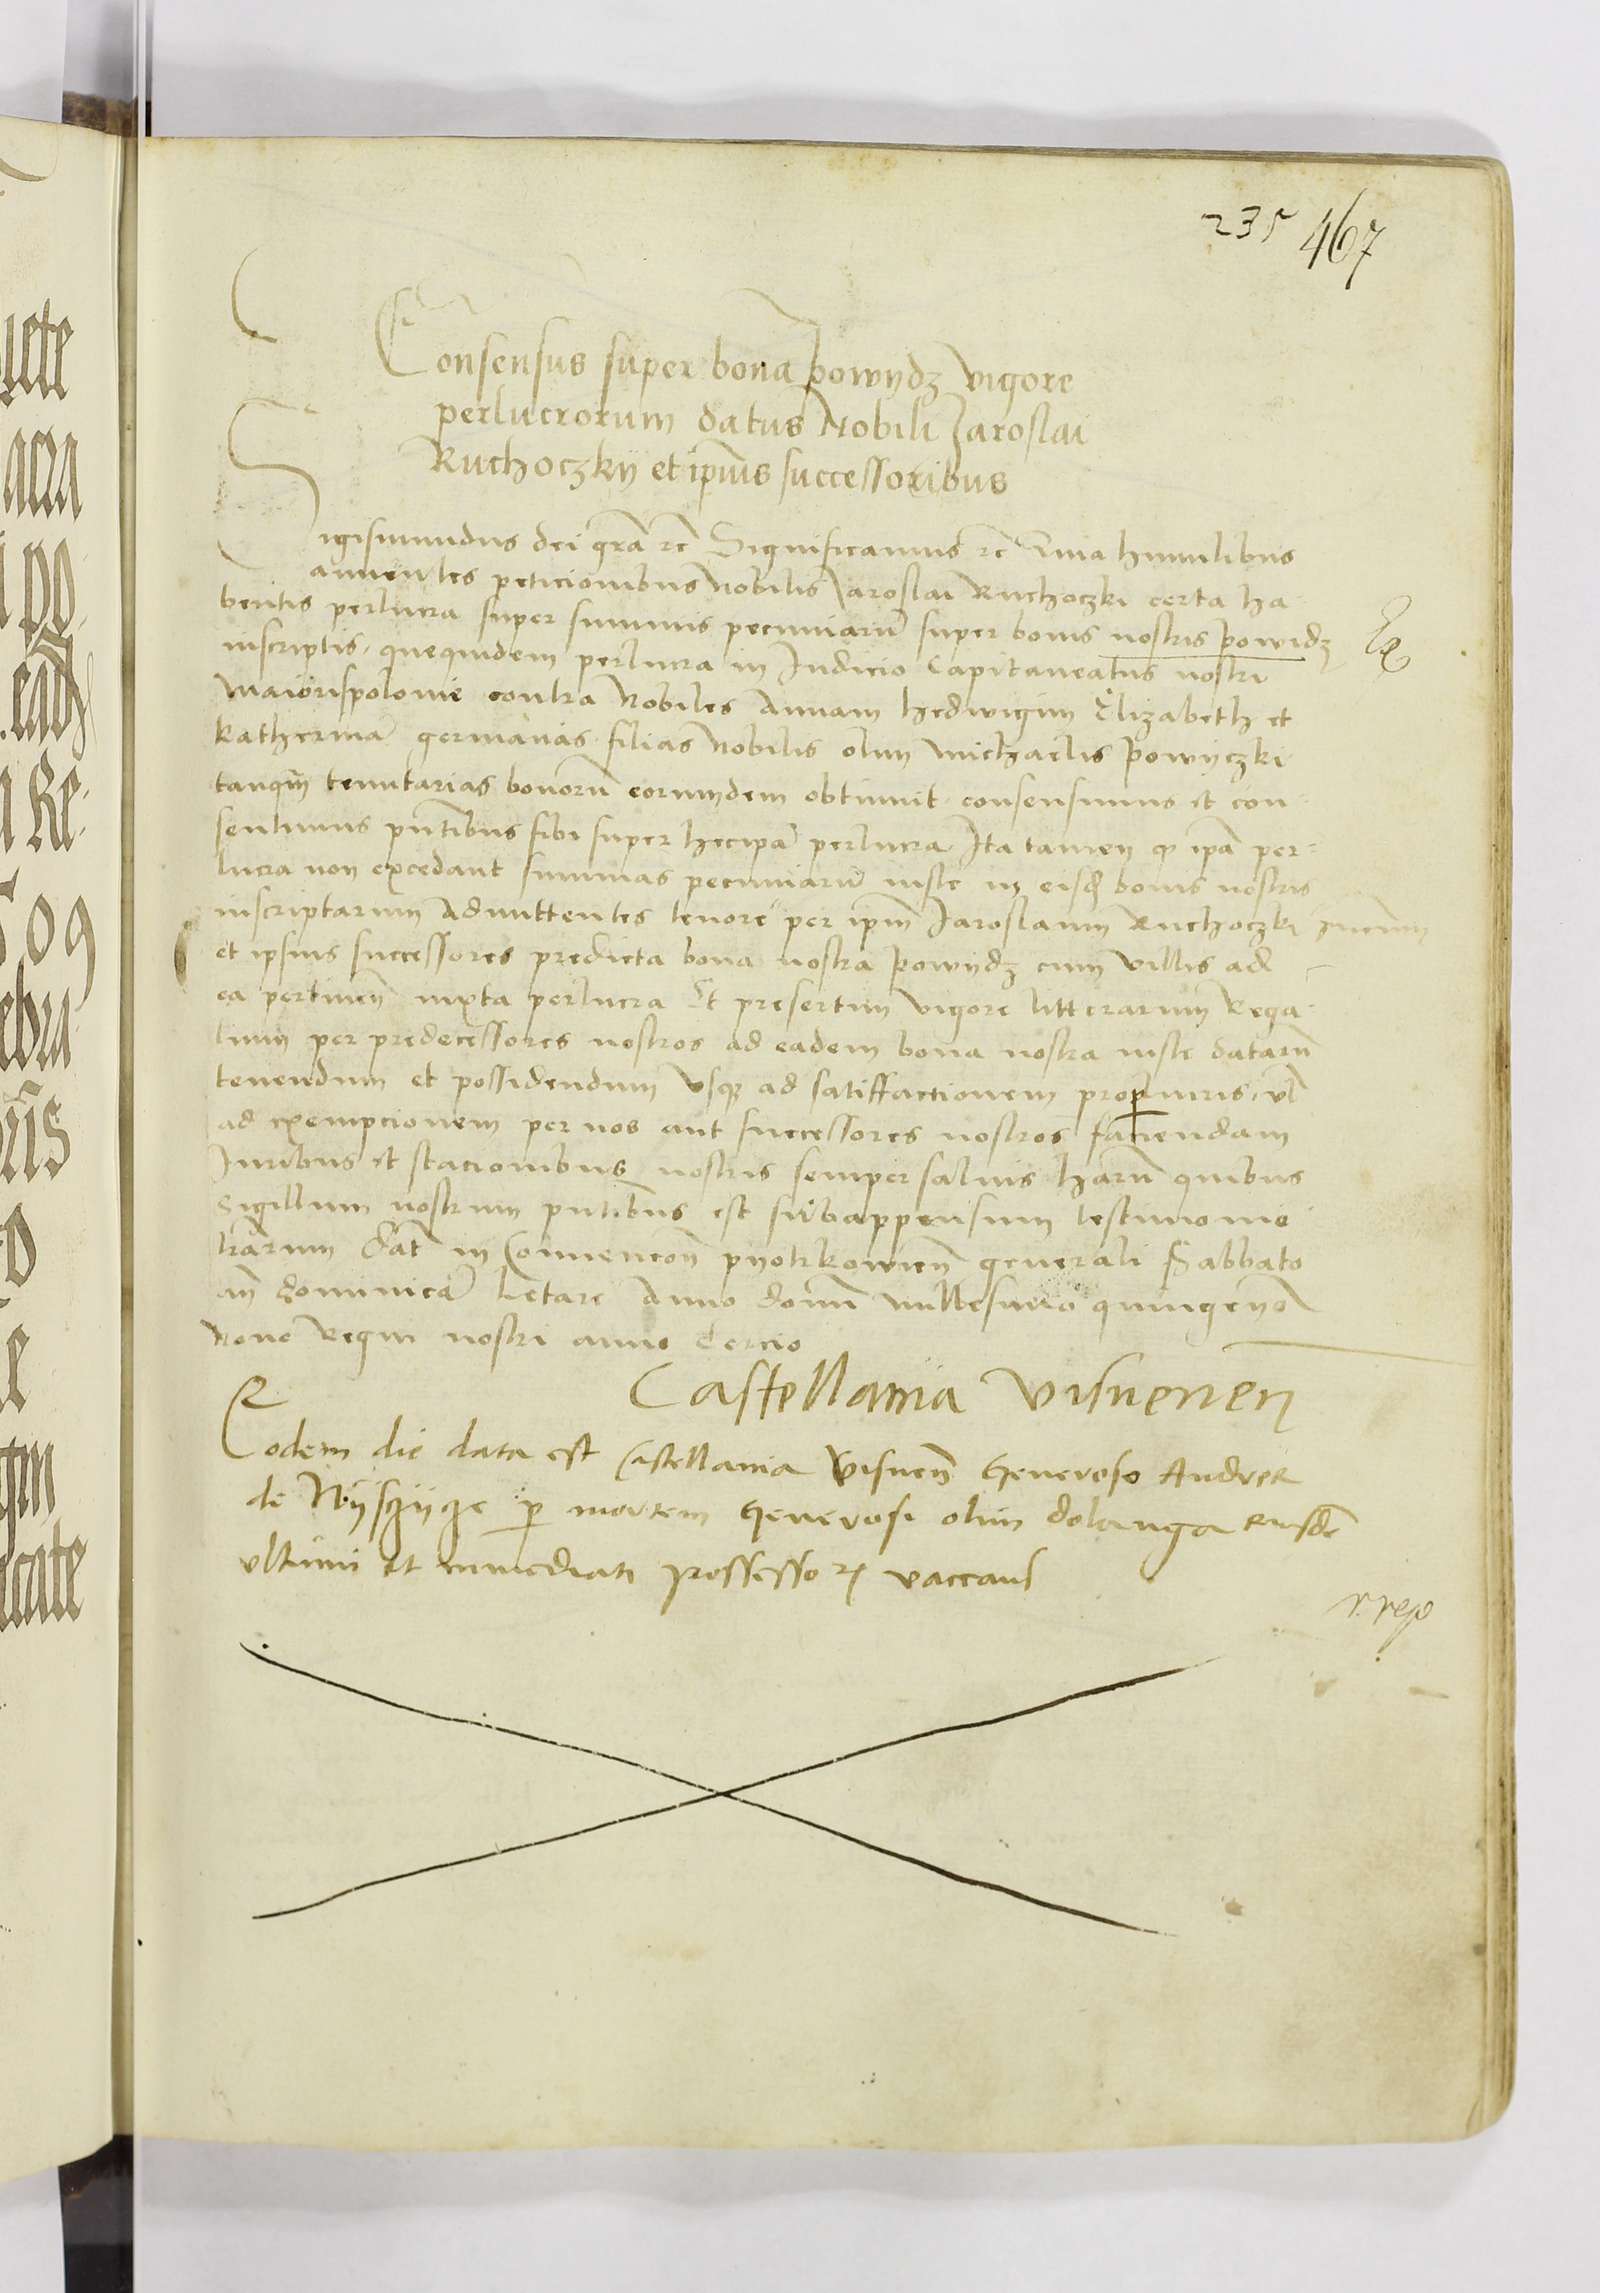 235 467
Consensus super bona powydz vigore
perlucrorum datus Nobili Jaroslai
Ruchoczky et ipius successoribus
Sigismundus dei gra rc Significamus rc Quia humilibus
annuentes peticionibus Nobilis Jaroslai Ruchoczki certa ha-
bentis perlucra super summis pecuniaru super bonis nostris powidz
inscriptis, quequidem perlucra in Judicio Capitaneatus nostri
Maiorispolonie contra Nobiles Annam hedwigim Elizabeth et
Katherina germanas filias Nobilis olim Michaelis powyczki
tanqm tenutarias bonoru eorumdem obtinuit consensimus et con-
sentimus pntibus sibi super hec ipa perlucra Ita tamen q ipa per-
lucra non excedant summas pecuniaru iuste in eisd bonis nostris
inscriptarum Admittentes tenore per ipm Jaroslaum Ruchoczki
et ipsius successores predicta bona nostra powydz cum villis ad
ea pertinen iuxta perlucra Et presertim vigore litterarum Rega-
lium per predecessores nostros ad eadem bona nostra iuste dataru
tenendum et possidendum vsq ad satiffactionem iuris, vl
ad exempcionem per nos aut successores nostros faciendam
Juribus et stacionibus nostris semper saluis haru quibus
Sigillum nostrum pntibus est subappensum testimonio
lrarum Dat in Conuencon pyotrkowien generali Sabbato
an dominica Letare Anno domi millesimo quingeno
Nono Regni nostri anno Tercio
Castellania visnenen
Eodem die data est Castellania Visnen Generoso Andree
de p mortem Generosi olim dolanga eiusde
vltimi et immediati possessor vaccans